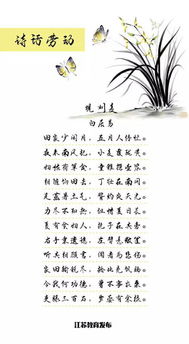 诗话劳动
观刈麦
白居易
田家少闲月，五月人倍忙。
夜来南风起，小麦覆陇黄。
妇姑荷箪食，童稚携壶浆。
相随饷田去，丁壮在南冈。
足蒸暑土气，背灼炎天光。
力尽不知热，但惜夏日长。
复有贫妇人，抱子在其旁。
右手秉遗穗，左臂悬敝筐。
听其相顾言，闻者为悲伤。
家田输税尽，拾此充饥肠。
今我何功德，曾不事农桑。
吏禄三百石，岁晏有余粮。
江苏教育发布